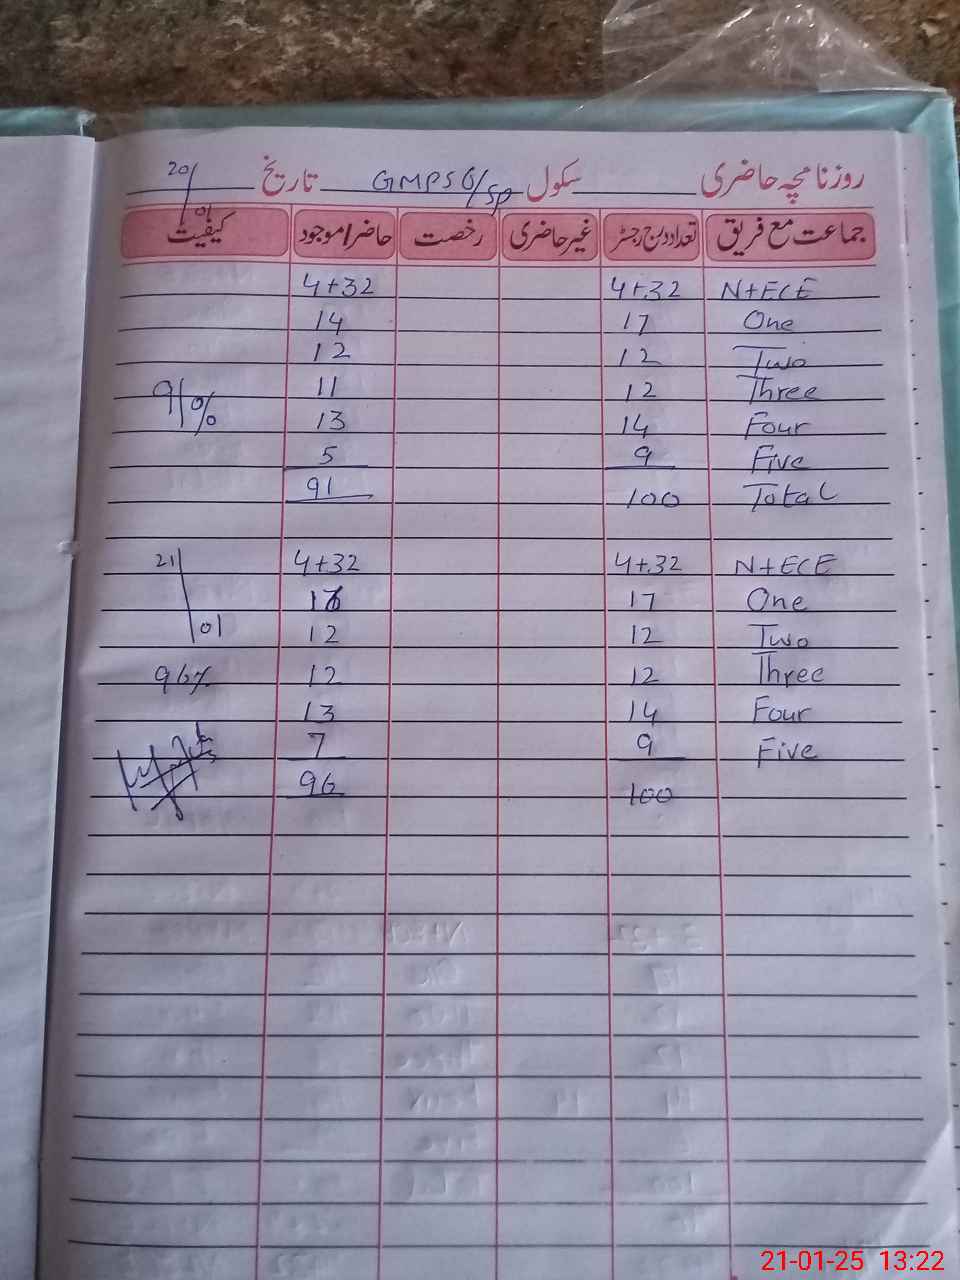 روزنامچہ حاضری سکول GMPS G/SP تاریخ 20/01
جماعت مع فریق تعداد درج رجسٹر غیر حاضری رخصت حاضر/موجود کیفیت
N+ECE 4+32 4+32
One 17 14
Two 12 12
Three 12 11 91%
Four 14 13
Five 9 5
Total 100 91
N+ECE 4+32 4+32 21/01
One 17 16
Two 12 12
Three 12 12 96%
Four 14 13
Five 9 7
100 96
21-01-25 13:22